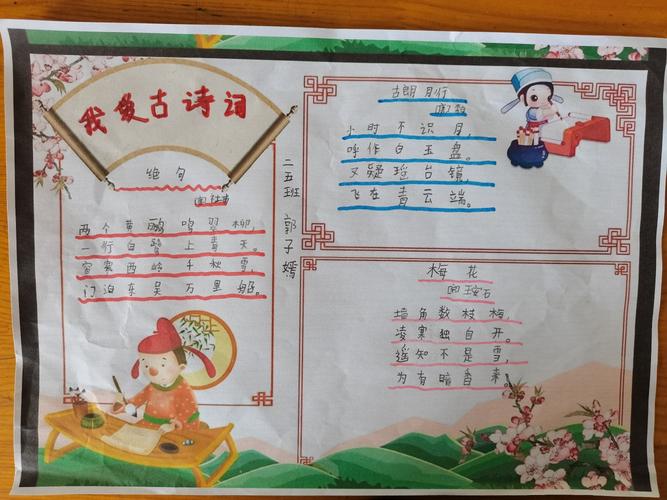 我爱古诗词
绝句
杜甫
两个黄鹂鸣翠柳,
一行白鹭上青天。
窗寒西岭千秋雪,
门泊东吴万里船。
二五班 郭子嫣
古朗月行
小时不识月,
呼作白玉盘。
又疑瑶台镜,
飞在青云端。
梅花
王安石
墙角数枝梅,
凌寒独自开。
遥知不是雪,
为有暗香来。